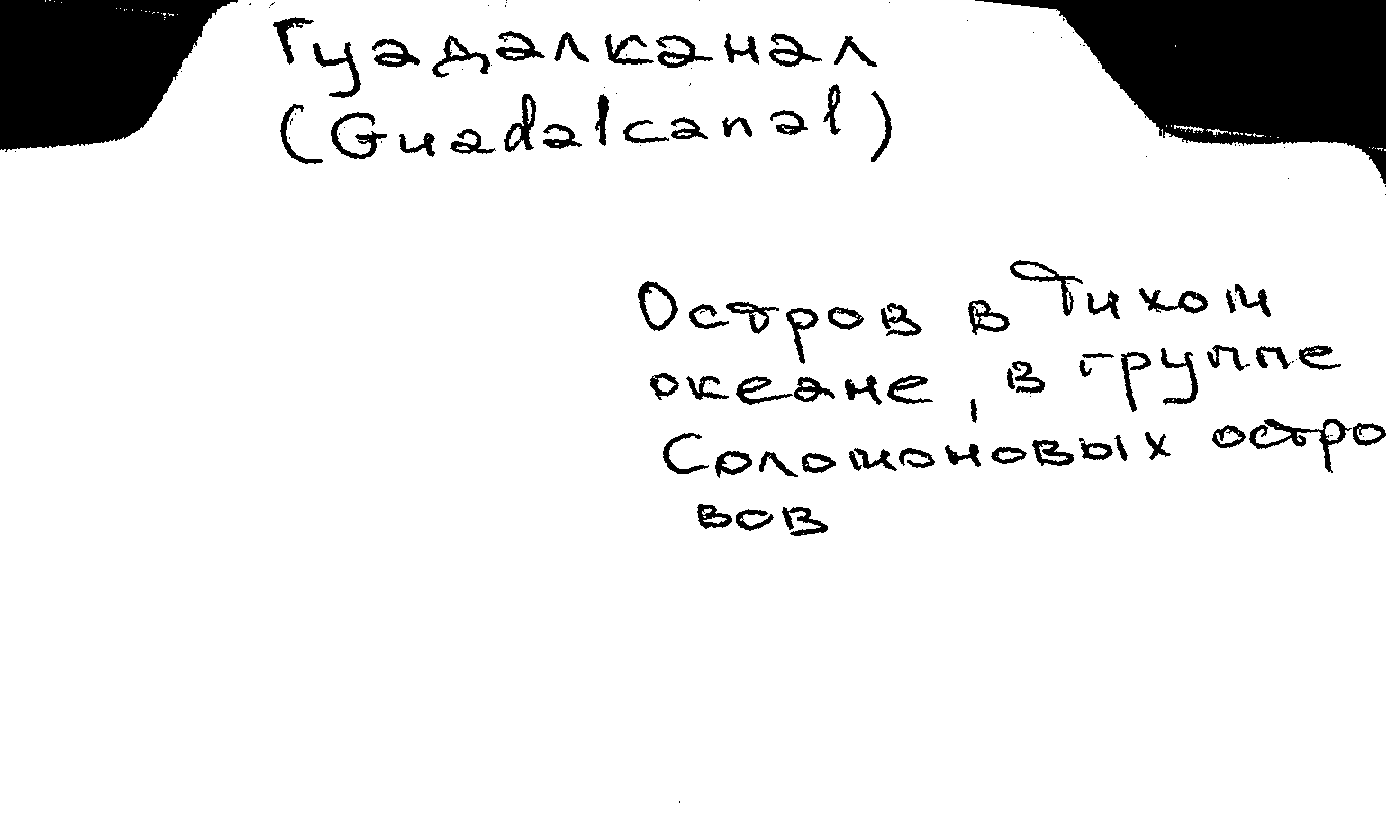 Гуадалканал
(Guadalcanal)
Остров в Тихом
океане, в группе
Соломоновых остро
вов